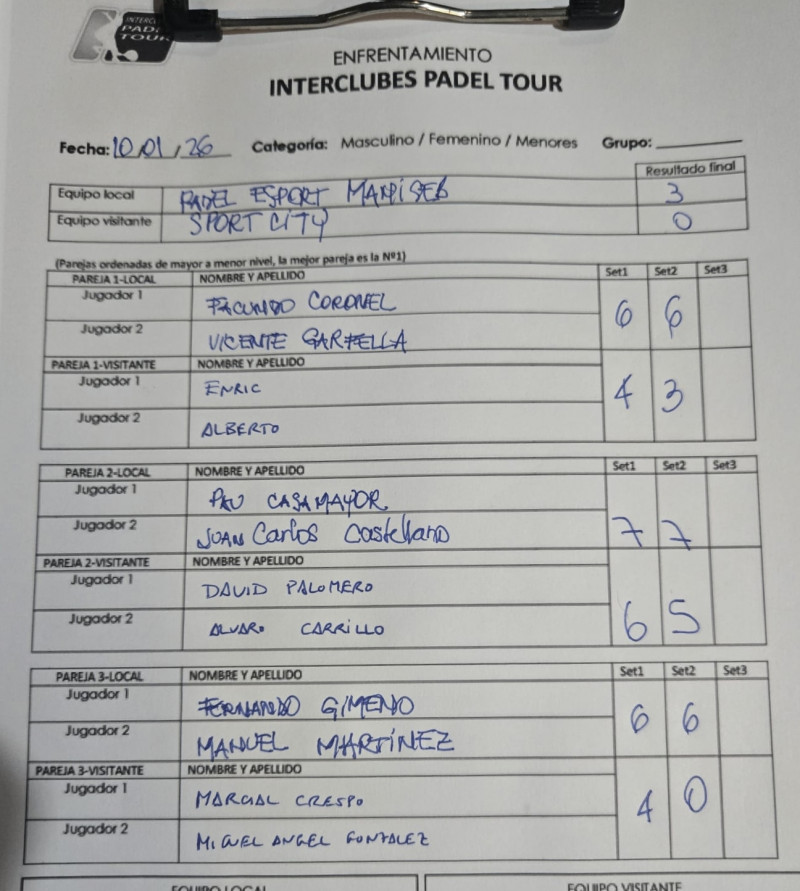 INTERCL
PAD
TOUR
ENFRENTAMIENTO
INTERCLUBES PADEL TOUR
Fecha: 10,01,26 Categoría: Masculino / Femenino / Menores Grupo:
Resultado final
Equipo local PADEL ESPORT MANISES 3
Equipo visitante SPORT CITY 0
(Parejas ordenadas de mayor a menor nivel, la mejor pareja es la Nº1)
PAREJA 1-LOCAL NOMBRE Y APELLIDO Set1 Set2 Set3
Jugador 1 FACUNDO CORONEL 6 6
Jugador 2 VICENTE GARFELLA
PAREJA 1-VISITANTE NOMBRE Y APELLIDO
Jugador 1 ENRIC 4 3
Jugador 2 ALBERTO
PAREJA 2-LOCAL NOMBRE Y APELLIDO Set1 Set2 Set3
Jugador 1 PAU CASAMAYOR
Jugador 2 JUAN Carlos Castellano 7 7
PAREJA 2-VISITANTE NOMBRE Y APELLIDO
Jugador 1 DAVID PALOMERO
Jugador 2 ALVARO CARRILLO 6 5
PAREJA 3-LOCAL NOMBRE Y APELLIDO Set1 Set2 Set3
Jugador 1 FERNANDO GIMENO 6 6
Jugador 2 MANUEL MARTÍNEZ
PAREJA 3-VISITANTE NOMBRE Y APELLIDO
Jugador 1 MARCIAL CRESPO 4 0
Jugador 2 MIGUEL ANGEL GONZALEZ
EQUIPO LOCAL EQUIPO VISITANTE